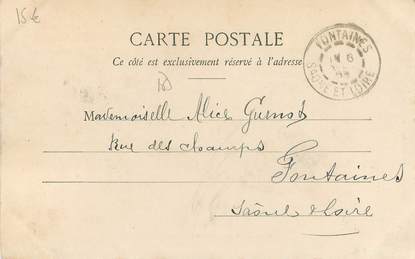 15€
CARTE POSTALE
Ce côté est exclusivement réservé à l'adresse
FONTAINES
SAONE ET LOIRE
Mademoiselle Alice Guenot
Rue des champs
Fontaines
Saône & Loire